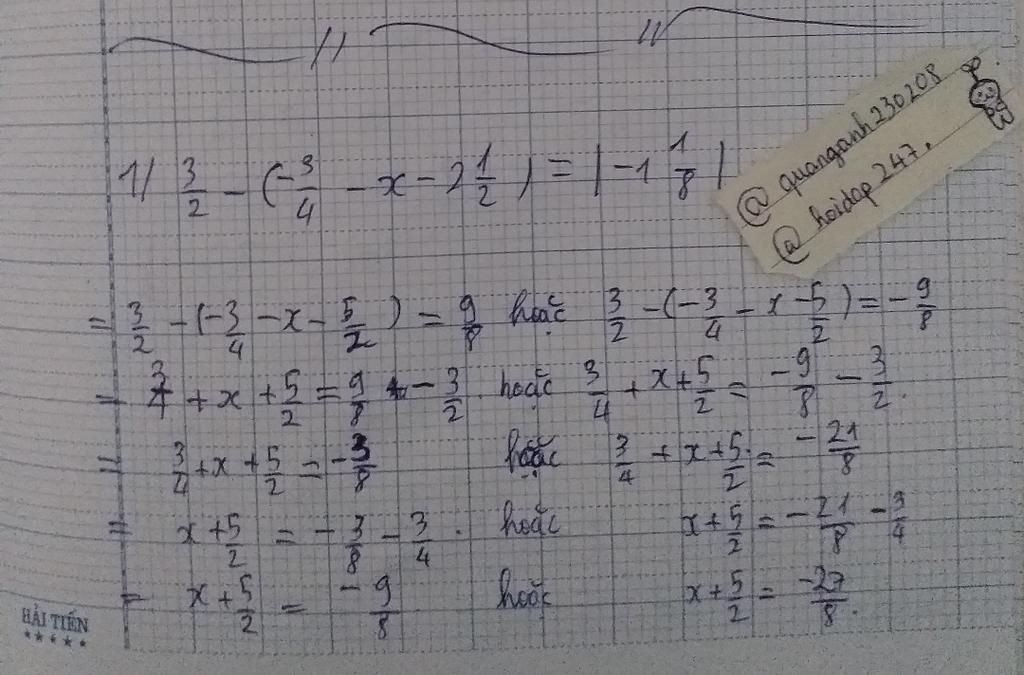 1/ 3/2 - (-3/4 - x - 2 1/2) = |-1 1/8|
@ quanganh230208
@ hoidap247.
= 3/2 - (-3/4 - x - 5/2) = 9/8 hoặc 3/2 - (-3/4 - x - 5/2) = -9/8
= 3/4 + x + 5/2 = 9/8 - 3/2. hoặc 3/4 + x + 5/2 = -9/8 - 3/2.
= 3/4 + x + 5/2 = -3/8 hoặc 3/4 + x + 5/2 = -21/8
= x + 5/2 = -3/8 - 3/4. hoặc x + 5/2 = -21/8 - 3/4
= x + 5/2 = -9/8 hoặc x + 5/2 = -27/8.
HẢI TIẾN
★★★★★